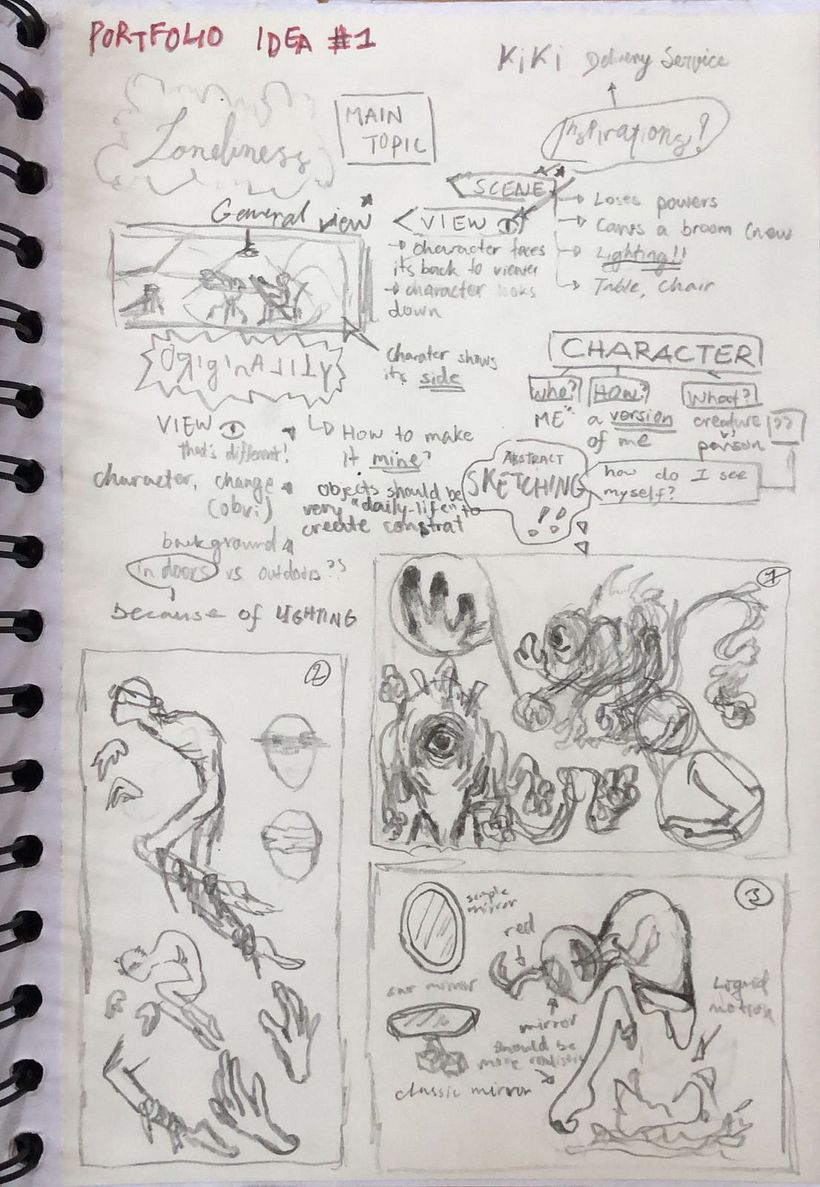 PORTFOLIO IDEA #1
KiKi Delivery Service
Loneliness
MAIN
TOPIC
Inspirations?
SCENE
Loses powers
Carves a broom (new
Lighting!!
Table, Chair
General view
VIEW
character faces
its back to viewer
character looks
down
Charater shows
its side
OriginAlity
VIEW
that's different!
character, change
(obvi)
background
indoors vs outdoors??
because of LIGHTING
How to make
it mine?
objects should be
very "daily-life" to
create constrat
CHARACTER
who? How? What?
ME a version
of me
creature ??
person
ABSTRACT
SKETCHING
how do I see
myself?
1
2
3
simple
mirror
red
car mirror
mirror
should be
more realistic
classic mirror
Liquid
motion